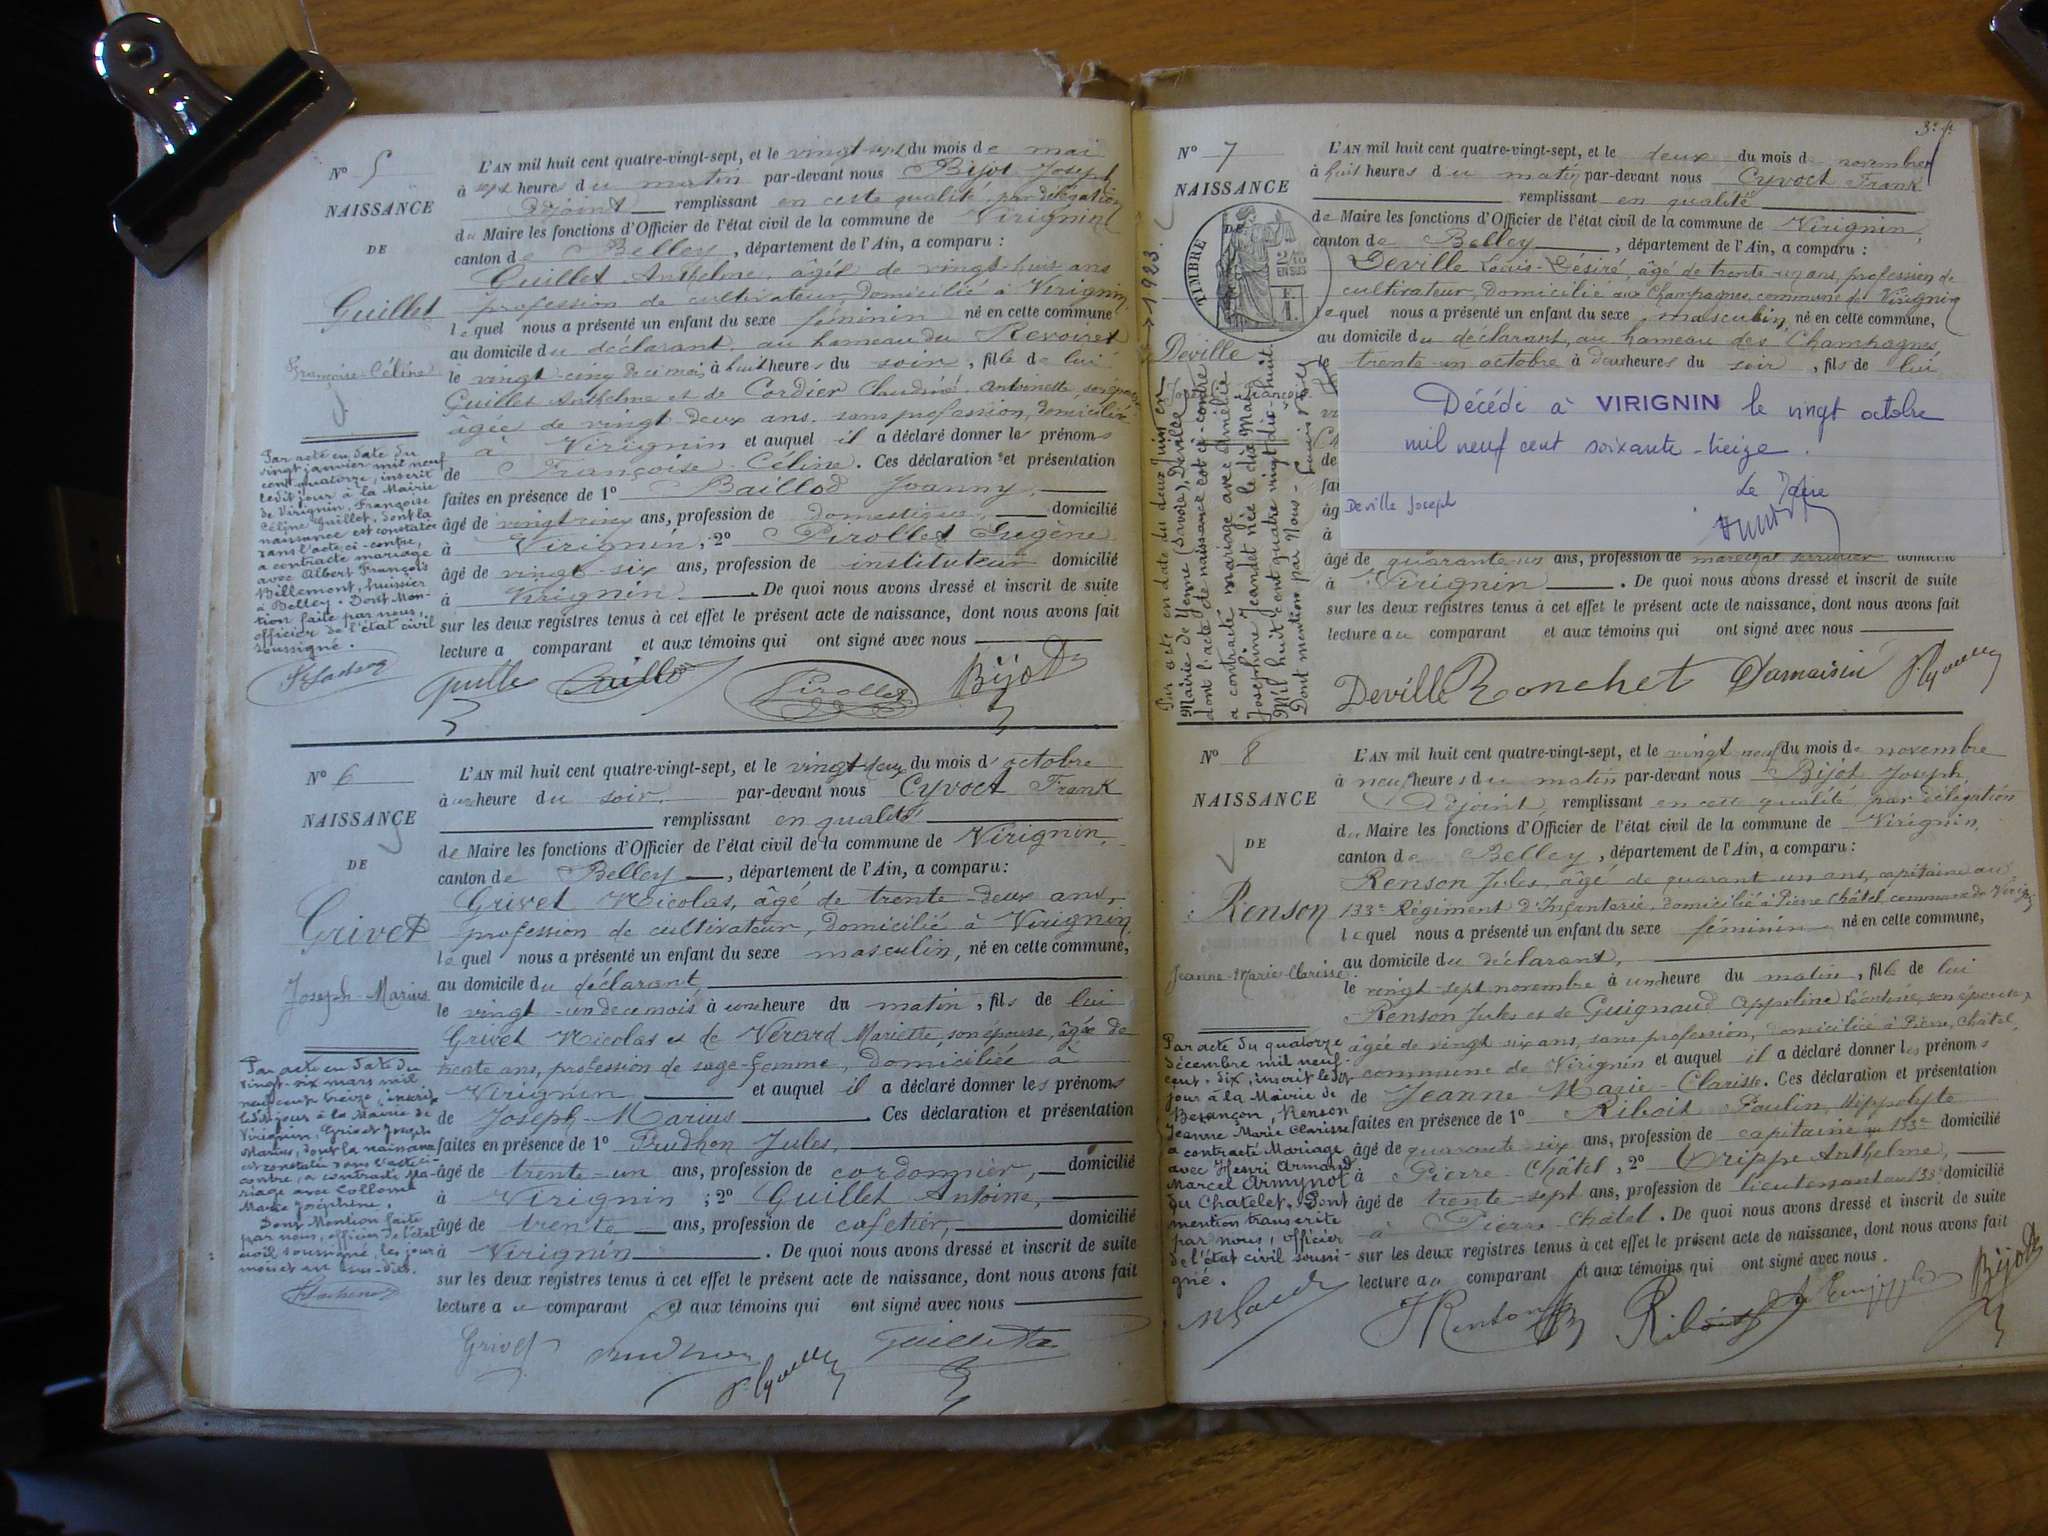 N° 5
NAISSANCE
DE
Guillet
Françoise-Céline
Par acte en date du
vingt janvier mil neuf
cent quatorze, inscrit
ledit jour à la Mairie
de Virignin, Françoise
Céline Guillet, dont la
naissance est constatée
dans l'acte ci-contre,
a contracté mariage
avec Albert François
Billemont, huissier
à Belley. Dont Men-
tion faite par nous,
officier de l'état civil
soussigné.
L'AN mil huit cent quatre-vingt-sept, et le vingt-sept du mois de mai
à sept heures du matin par-devant nous Bijot Joseph
Adjoint remplissant en cette qualité, par délégation
du Maire les fonctions d'Officier de l'état civil de la commune de Virignin
canton de Belley, département de l'Ain, a comparu :
Guillet Anthelme, âgé de vingt-huit ans
profession de cultivateur, domicilié à Virignin
lequel nous a présenté un enfant du sexe féminin né en cette commune
au domicile du déclarant, au hameau du Revoiret
le vingt-cinq de ce mois à huit heures du soir, fille de lui
Guillet Anthelme et de Cordier Claudine Antoinette, son épouse
âgée de vingt-deux ans, sans profession, domiciliée
à Virignin et auquel il a déclaré donner les prénoms
de Françoise-Céline. Ces déclaration et présentation
faites en présence de 1° Baillod Joanny,
âgé de vingt cinq ans, profession de domestique, domicilié
à Virignin, 2° Pirollet Eugène
âgé de vingt-six ans, profession de instituteur domicilié
à Virignin. De quoi nous avons dressé et inscrit de suite
sur les deux registres tenus à cet effet le présent acte de naissance, dont nous avons fait
lecture a comparant et aux témoins qui ont signé avec nous
Guillet Baillod Pirollet Bijot
N° 6
NAISSANCE
DE
Grivet
Joseph-Marius
Par acte en date du
vingt-six mars mil
neuf cent treize, inscrit
ledit jour à la Mairie de
Virignin, Grivet Joseph
Marius, dont la naissance
est constatée dans l'acte ci-
contre, a contracté Ma-
riage avec Collomb
Marie Joséphine.
Dont Mention faite
par nous, officier de l'état
civil soussigné, les jour
mois et an sus-dits.
L'AN mil huit cent quatre-vingt-sept, et le vingt-deux du mois d'octobre
à une heure du soir par-devant nous Cyvoct Frank
remplissant en qualité
de Maire les fonctions d'Officier de l'état civil de la commune de Virignin,
canton de Belley, département de l'Ain, a comparu :
Grivet Nicolas, âgé de trente-deux ans,
profession de cultivateur, domicilié à Virignin
lequel nous a présenté un enfant du sexe masculin, né en cette commune,
au domicile du déclarant,
le vingt-un de ce mois à une heure du matin, fils de lui
Grivet Nicolas et de Vérard Mariette, son épouse, âgée de
trente ans, profession de sage-femme, domiciliée à
Virignin et auquel il a déclaré donner les prénoms
de Joseph-Marius Ces déclaration et présentation
faites en présence de 1° Prudhon Jules,
âgé de trente-un ans, profession de cordonnier, domicilié
à Virignin ; 2° Guillet Antoine,
âgé de trente ans, profession de cafetier, domicilié
à Virignin. De quoi nous avons dressé et inscrit de suite
sur les deux registres tenus à cet effet le présent acte de naissance, dont nous avons fait
lecture au comparant et aux témoins qui ont signé avec nous
Grivet Prudhon Guillet
N° 7
NAISSANCE
TIMBRE
2/10
EN SUS
→ 1923.
Deville
Par acte en date du deux Juin en
Mairie de Yenne (Savoie), Deville
dont l'acte de naissance est ci-contre
a contracté mariage avec Amélie
Joséphine Jeandet née le dix Mai
Mil huit cent quatre vingt dix-huit.
Dont mention par Nous.
L'AN mil huit cent quatre-vingt-sept, et le deux du mois de novembre
à huit heures du matin par-devant nous Cyvoct Frank
remplissant en qualité
de Maire les fonctions d'Officier de l'état civil de la commune de Virignin,
canton de Belley, département de l'Ain, a comparu :
Deville Louis-Désiré, âgé de trente-un ans, profession de
cultivateur, domicilié aux Champagnes, commune de Virignin
lequel nous a présenté un enfant du sexe masculin, né en cette commune,
au domicile du déclarant, au hameau des Champagnes
le trente-un octobre à deux heures du soir, fils de lui
Décédé à VIRIGNIN le vingt octobre
mil neuf cent soixante-treize.
Le Maire
Deville Joseph
âgé de quarante-un ans, profession de maréchal ferrant domicilié
à Virignin. De quoi nous avons dressé et inscrit de suite
sur les deux registres tenus à cet effet le présent acte de naissance, dont nous avons fait
lecture au comparant et aux témoins qui ont signé avec nous
Deville Ronchet Damaisin
N° 8
NAISSANCE
DE
Renson
Jeanne-Marie-Clarisse
Par acte du quatorze
décembre mil neuf
cent dix, inscrit ledit
jour à la Mairie de
Besançon, Renson
Jeanne Marie Clarisse
a contracté Mariage
avec Henri Armand
Marcel Armynot
du Chatelet. Dont
mention transcrite
par nous, officier
de l'état civil soussi-
gné.
L'AN mil huit cent quatre-vingt-sept, et le vingt-neuf du mois de novembre
à neuf heures du matin par-devant nous Bijot Joseph
Adjoint remplissant en cette qualité, par délégation
du Maire les fonctions d'Officier de l'état civil de la commune de Virignin,
canton de Belley, département de l'Ain, a comparu :
Renson Jules, âgé de quarant-un ans, capitaine au
133e Régiment d'Infanterie, domicilié à Pierre Châtel, commune de Virignin
lequel nous a présenté un enfant du sexe féminin né en cette commune,
au domicile du déclarant,
le vingt-sept novembre à une heure du matin, fille de lui
Renson Jules et de Guignaud Appoline Léontine, son épouse,
âgée de vingt six ans, sans profession, domiciliée à Pierre-Châtel,
commune de Virignin et auquel il a déclaré donner les prénoms
de Jeanne-Marie-Clarisse. Ces déclaration et présentation
faites en présence de 1° Riboit Paulin, Hippolyte
âgé de quarante-six ans, profession de capitaine au 133e domicilié
à Pierre Châtel, 2° Anthelme,
âgé de trente-sept ans, profession de lieutenant au 133e domicilié
à Pierre-Châtel. De quoi nous avons dressé et inscrit de suite
sur les deux registres tenus à cet effet le présent acte de naissance, dont nous avons fait
lecture au comparant et aux témoins qui ont signé avec nous.
JRenson Riboit Bijot